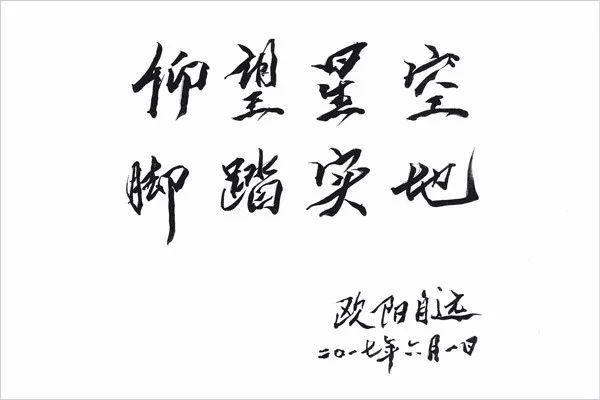 仰望星空
脚踏实地
欧阳自远
二〇一七年六月一日